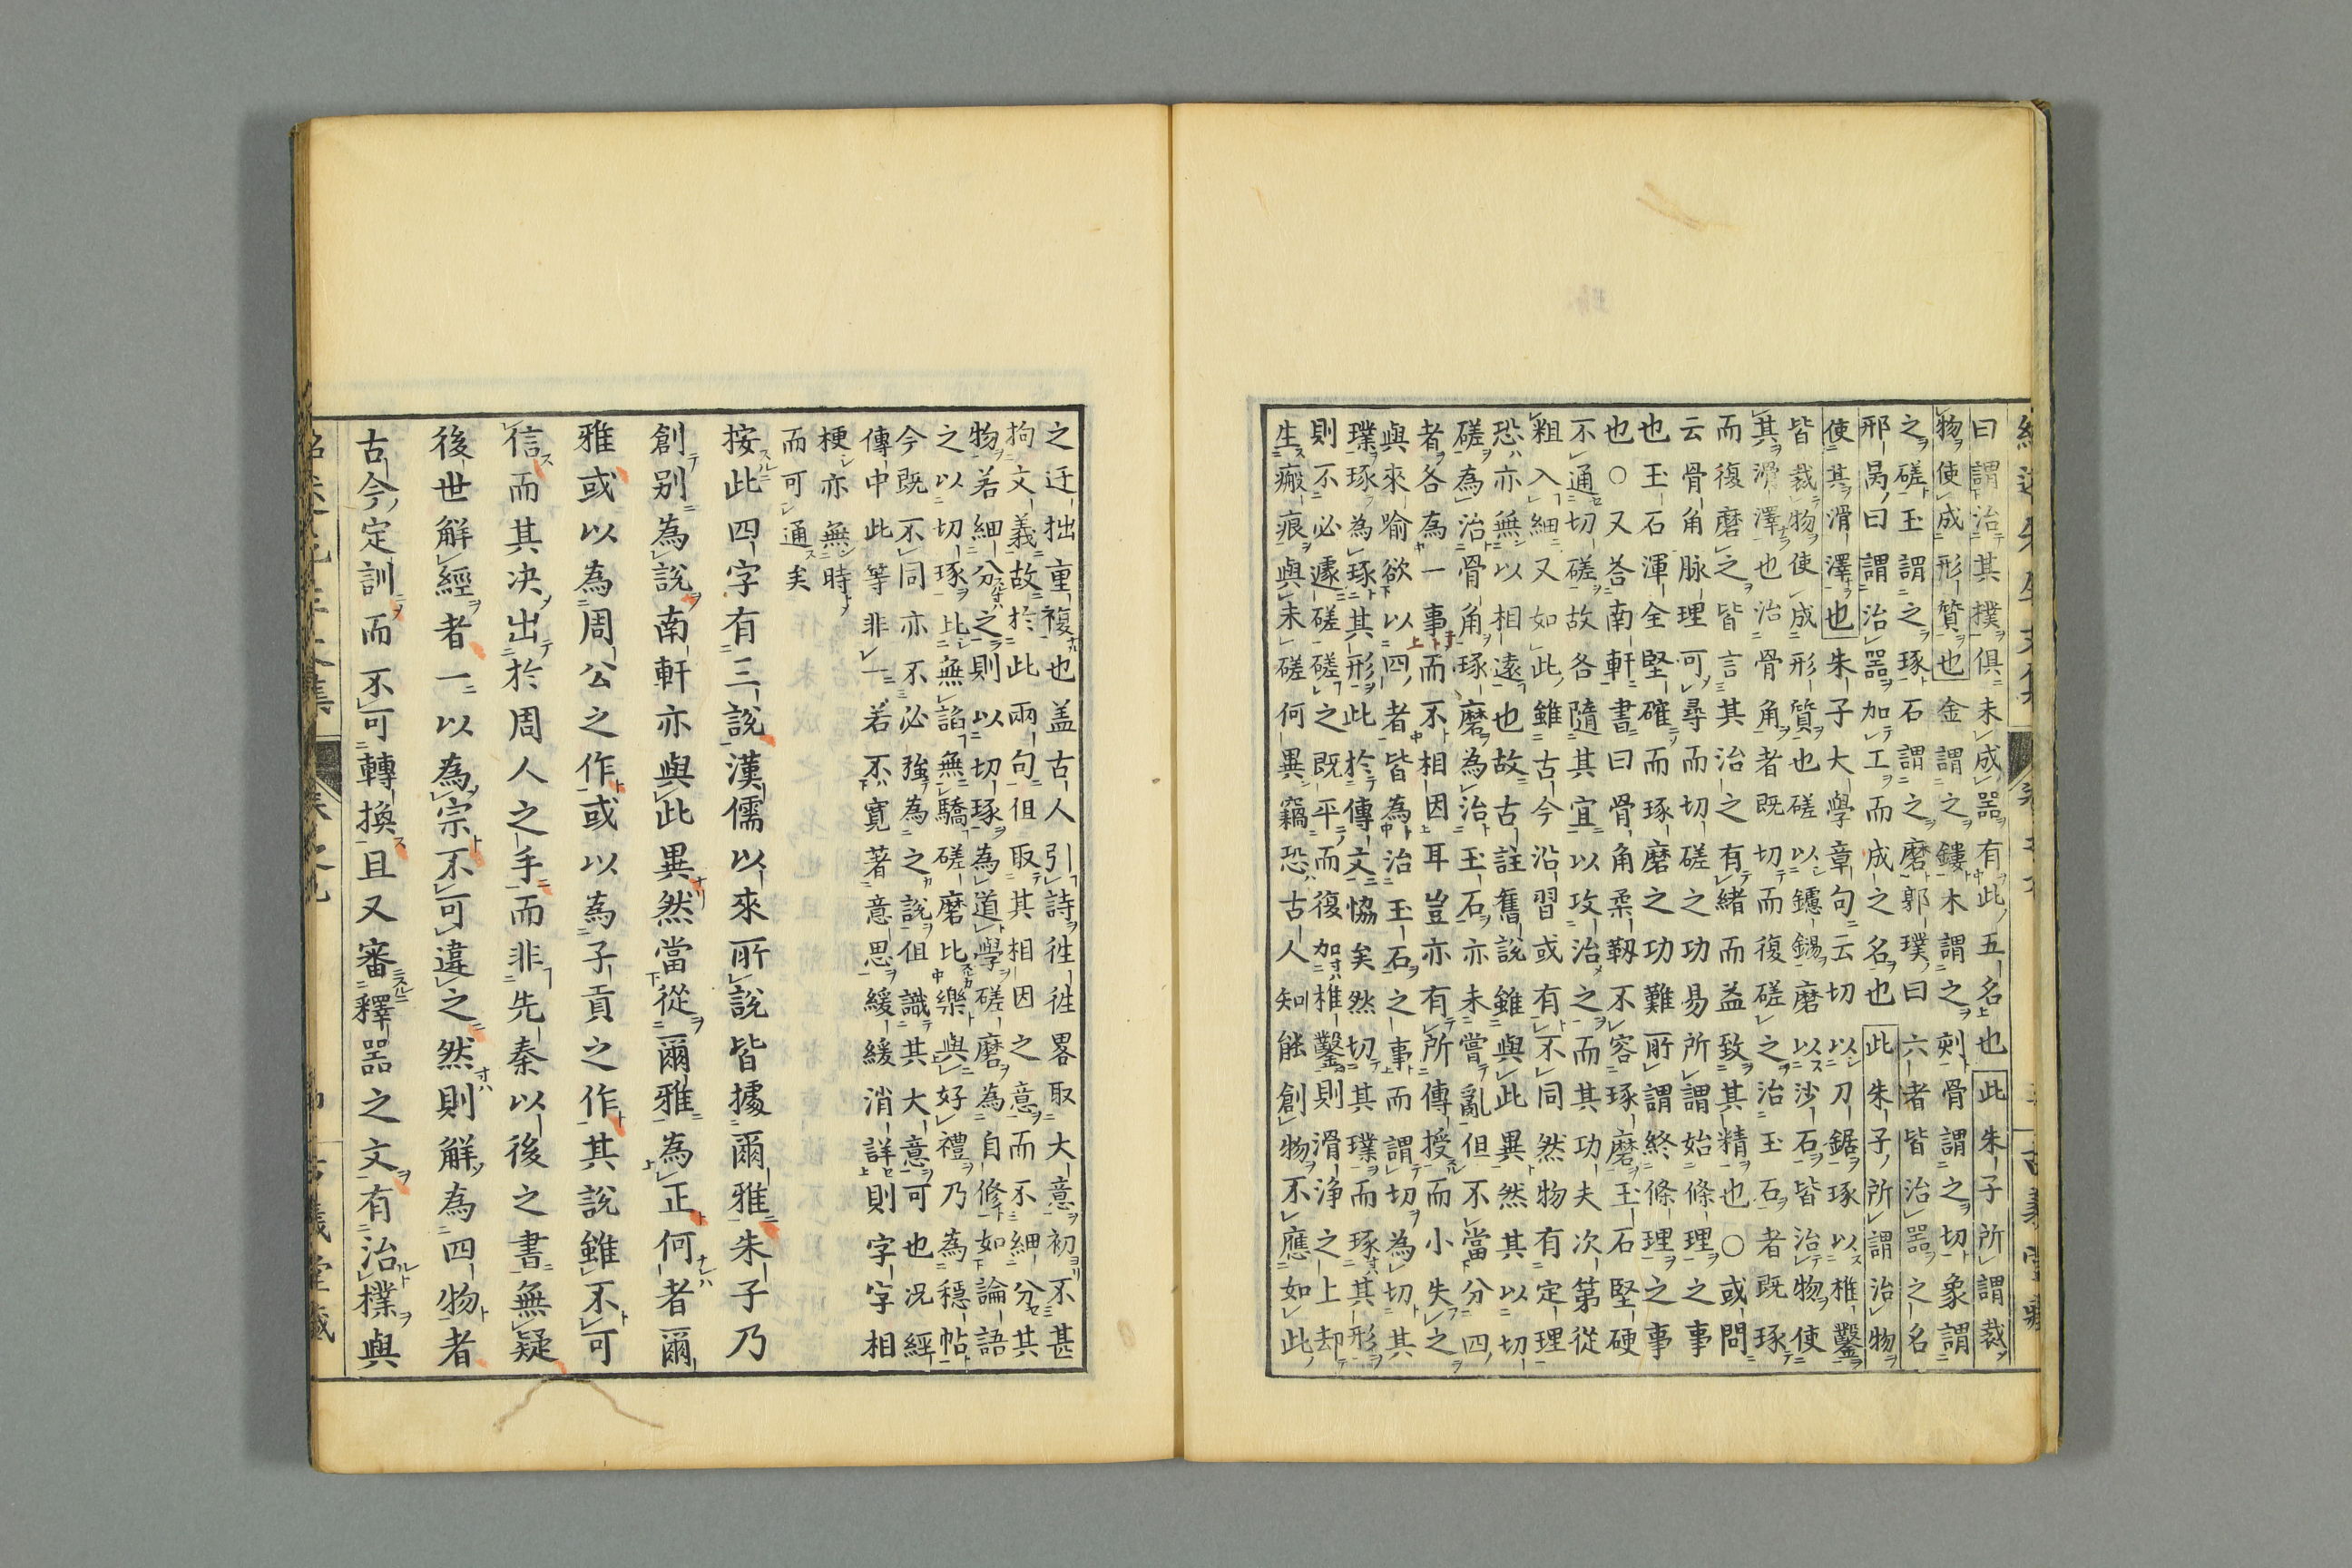 曰謂治其樸俱未成噐有此五名也此朱子所謂裁
物使成形質也金謂之鏤木謂之刻骨謂之切象謂
之磋玉謂之琢石謂之磨郭璞曰六者皆治噐之名
邢昺曰謂治噐加工而成之名也此朱子所謂治物
使其滑澤也朱子大學章句云切以刀鋸琢以椎鑿
皆裁物使成形質也磋以鑢鐋磨以沙石皆治物使
其滑澤也治骨角者既切而復磋之治玉石者既琢
而復磨之皆言其治之有緒而益致其精也〇或問
云骨角脉理可尋而切磋之功易所謂始條理之事
也玉石渾全堅確而琢磨之功難所謂終條理之事
也〇又荅南軒書曰骨角柔靱不容琢磨玉石堅硬
不通切磋故各隨其宜以攻治之而其功夫次第從
粗入細又如此雖古今沿習或有不同然物有定理
恐亦無以相遠也故古註舊說雖與此異然其以切
磋為治骨角琢磨為治玉石亦未嘗亂但不當分四
者各為一事而不相因耳豈亦有所傳授而小失之
與來喻欲以四者皆為治玉石之事而謂切為切其
璞琢為琢其形此於傳文恊矣然切其璞而琢其形
則不必遽磋磋之既平而復加椎鑿則滑浄之上却
生瘢痕與未磋何異竊恐古人知能創物不應如此
之迂拙重複也盖古人引詩徃徃畧取大意初不甚
拘文義故於此兩句但取其相因之意而不細分其
物若細分之則以切琢為道學磋磨為自修如論語
之以切琢比無諂無驕磋磨比樂與好禮乃為穩帖
今既不同亦不必強為之說但識其大意可也况經
傳中此等非一若不寛著意思緩緩消詳則字字相
梗亦無時
而可通矣
按此四字有三說漢儒以來所說皆據爾雅朱子乃
創别為說南軒亦與此異然當從爾雅為正何者爾
雅或以為周公之作或以為子貢之作其說雖不可
信而其决出於周人之手而非先秦以後之書無疑
後世解經者一以為宗不可違之然則解為四物者
古今定訓而不可轉換且又審釋噐之文有治樸與